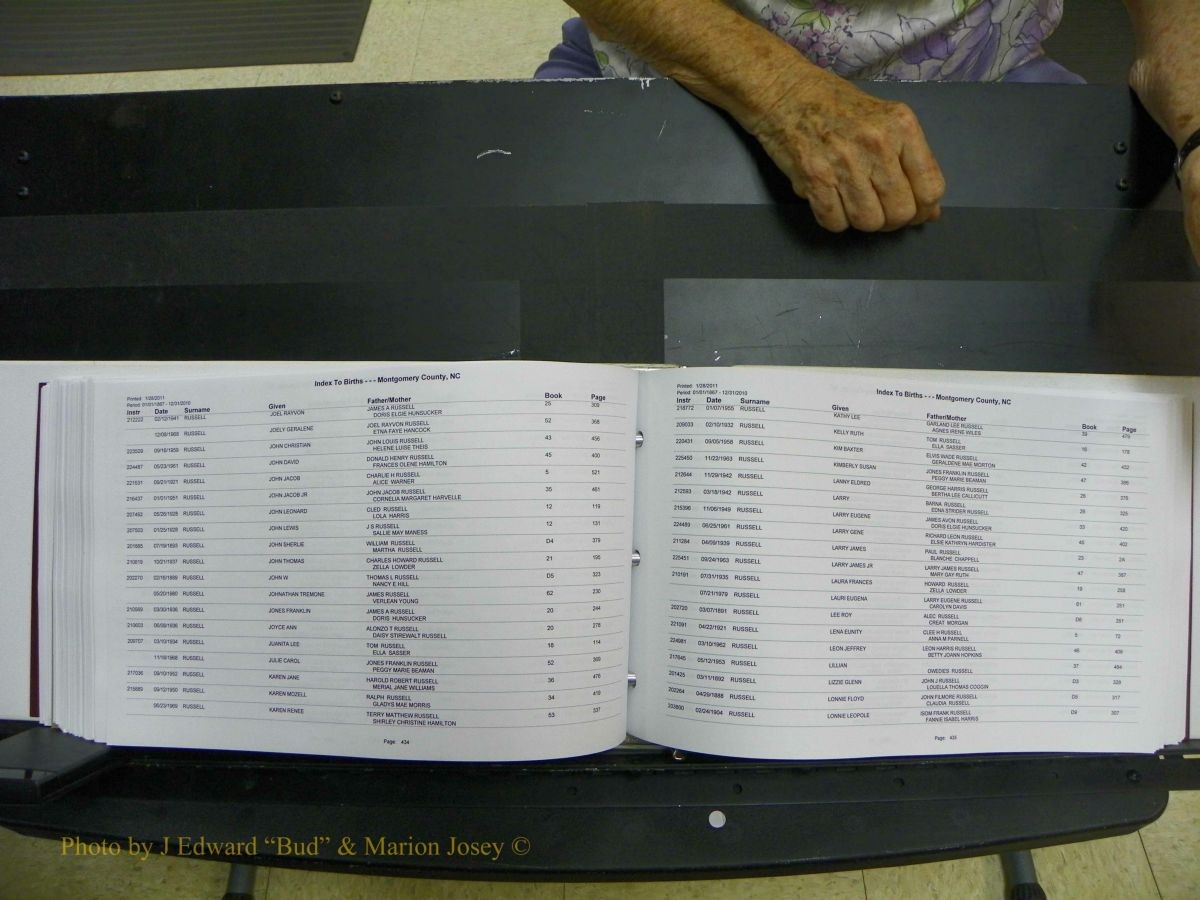 Index To Births - - - Montgomery County, NC
Printed: 1/28/2011
Period: 01/01/1867 - 12/31/2010
Instr Date Surname Given Father/Mother Book Page
212222 02/12/1941 RUSSELL JOEL RAYVON JAMES A RUSSELL 25 309
DORIS ELGIE HUNSUCKER
12/09/1968 RUSSELL JOELY GERALENE JOEL RAYVON RUSSELL 52 368
ETNA FAYE HANCOCK
223509 09/16/1959 RUSSELL JOHN CHRISTIAN JOHN LOUIS RUSSELL 43 456
HELENE LUISE THEIS
224487 05/23/1961 RUSSELL JOHN DAVID DONALD HENRY RUSSELL 45 400
FRANCES OLENE HAMILTON
221531 09/21/1921 RUSSELL JOHN JACOB CHARLIE H RUSSELL 5 521
ALICE WARNER
216437 01/01/1951 RUSSELL JOHN JACOB JR JOHN JACOB RUSSELL 35 461
CORNELIA MARGARET HARVELLE
207492 05/26/1928 RUSSELL JOHN LEONARD CLED RUSSELL 12 119
LOLA HARRIS
207503 01/25/1928 RUSSELL JOHN LEWIS J S RUSSELL 12 131
SALLIE MAY MANESS
201685 07/19/1893 RUSSELL JOHN SHERLIE WILLIAM RUSSELL D4 379
MARTHA RUSSELL
210619 10/21/1937 RUSSELL JOHN THOMAS CHARLES HOWARD RUSSELL 21 195
ZELLA LOWDER
202270 02/16/1889 RUSSELL JOHN W THOMAS L RUSSELL D5 323
NANCY E HILL
05/20/1980 RUSSELL JOHNATHAN TREMONE JAMES RUSSELL 62 230
VERLEAN YOUNG
210569 03/30/1936 RUSSELL JONES FRANKLIN JAMES A RUSSELL 20 244
DORIS ELGIE HUNSUCKER
210603 06/09/1936 RUSSELL JOYCE ANN ALONZO T RUSSELL 20 278
DAISY STIREWALT RUSSELL
209707 03/10/1934 RUSSELL JUANITA LEE TOM RUSSELL 18 114
ELLA SASSER
11/18/1968 RUSSELL JULIE CAROL JONES FRANKLIN RUSSELL 52 369
PEGGY MARIE BEAMAN
217036 09/10/1952 RUSSELL KAREN JANE HAROLD ROBERT RUSSELL 36 476
MERIAL JANE WILLIAMS
215889 09/12/1950 RUSSELL KAREN MOZELL RALPH RUSSELL 34 419
GLADYS MAE MORRIS
06/23/1969 RUSSELL KAREN RENEE TERRY MATTHEW RUSSELL 53 537
SHIRLEY CHRISTINE HAMILTON
Page: 434
Index To Births - - - Montgomery County, NC
Printed: 1/28/2011
Period: 01/01/1867 - 12/31/2010
Instr Date Surname Given Father/Mother Book Page
218772 01/07/1955 RUSSELL KATHY LEE GARLAND LEE RUSSELL 39 479
AGNES IRENE WILES
209033 02/10/1932 RUSSELL KELLY RUTH TOM RUSSELL 16 178
ELLA SASSER
220431 09/05/1958 RUSSELL KIM BAXTER ELVIS WADE RUSSELL 42 432
GERALDENE MAE MORTON
225450 11/22/1963 RUSSELL KIMBERLY SUSAN JONES FRANKLIN RUSSELL 47 386
PEGGY MARIE BEAMAN
212644 11/29/1942 RUSSELL LANNY ELDRED GEORGE HARRIS RUSSELL 26 376
BERTHA LEE CALLICUTT
212593 03/18/1942 RUSSELL LARRY BARNA RUSSELL 26 325
EDNA STRIDER RUSSELL
215396 11/06/1949 RUSSELL LARRY EUGENE JAMES AVON RUSSELL 33 420
DORIS ELGIE HUNSUCKER
224489 06/25/1961 RUSSELL LARRY GENE RICHARD LEON RUSSELL 45 402
ELSIE KATHRYN HARDISTER
211284 04/09/1939 RUSSELL LARRY JAMES PAUL RUSSELL 23 2A
BLANCHE CHAPPELL
225451 09/24/1963 RUSSELL LARRY JAMES JR LARRY JAMES RUSSELL 47 387
MARY GAY RUTH
210191 07/31/1935 RUSSELL LAURA FRANCES HOWARD RUSSELL 19 258
ZELLA LOWDER
07/21/1979 RUSSELL LAURI EUGENA LARRY EUGENE RUSSELL 61 251
CAROLYN DAVIS
202720 03/07/1891 RUSSELL LEE ROY ALEC RUSSELL D6 261
CREAT MORGAN
221091 04/22/1921 RUSSELL LENA EUNITY CLEE H RUSSELL 5 72
ANNA M PARNELL
224981 03/10/1962 RUSSELL LEON JEFFREY LEON HARRIS RUSSELL 46 409
BETTY JOANN HOPKINS
217645 05/12/1953 RUSSELL LILLIAN 37 484
OWEDIES RUSSELL
201425 03/11/1892 RUSSELL LIZZIE GLENN JOHN J RUSSELL D3 328
LOUELLA THOMAS COGGIN
202264 04/29/1888 RUSSELL LONNIE FLOYD JOHN FILMORE RUSSELL D5 317
CLAUDIA RUSSELL
203800 02/24/1904 RUSSELL LONNIE LEOPOLE ISOM FRANK RUSSELL D9 307
FANNIE ISABEL HARRIS
Page: 435
Photo by J Edward “Bud” & Marion Josey ©